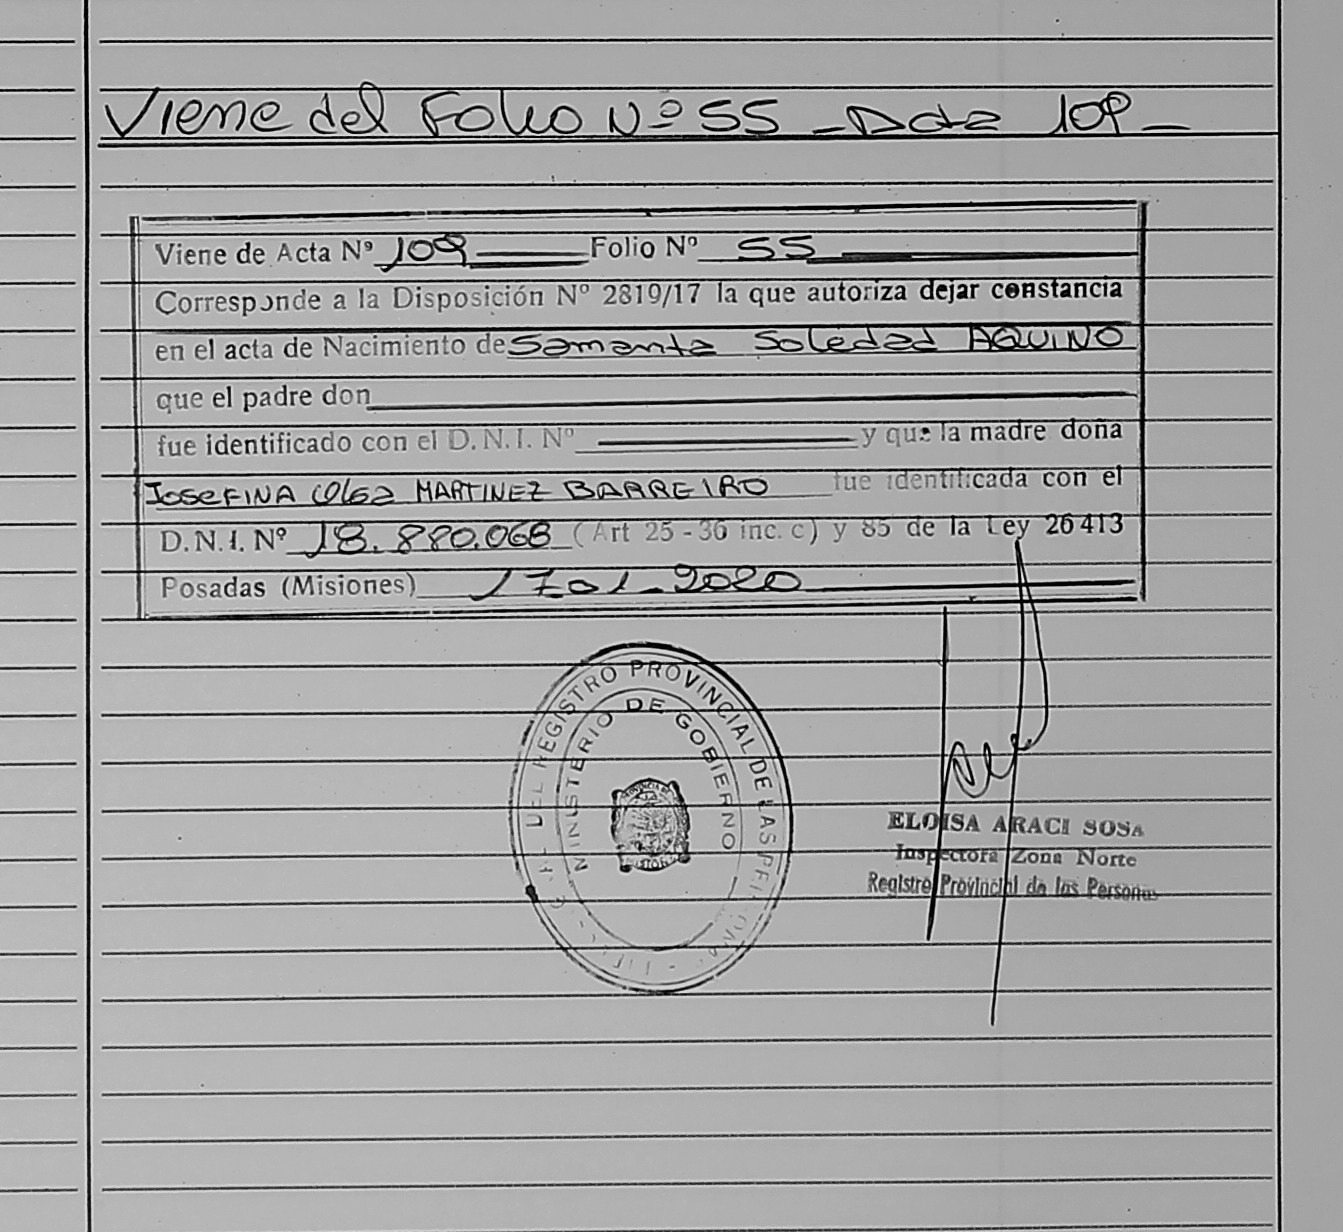 Viene del Folio Nº 55 - Acta 109 -
Viene de Acta Nº 109 Folio Nº 55
Corresponde a la Disposición Nº 2819/17 la que autoriza dejar constancia
en el acta de Nacimiento de Samanta Soledad AQUINO
que el padre don
fue identificado con el D.N.I. Nº y que la madre doña
JOSEFINA MARTINEZ BARREIRO fue identificada con el
D.N.I. Nº 18.880.068 (Art 25-36 inc. c) y 85 de la Ley 26413
Posadas (Misiones) 17-01-2020
DEL REGISTRO PROVINCIAL DE LAS PERSONAS
MINISTERIO DE GOBIERNO
ELOISA ARACI SOSA
Inspectora Zona Norte
Registro Provincial de las Personas